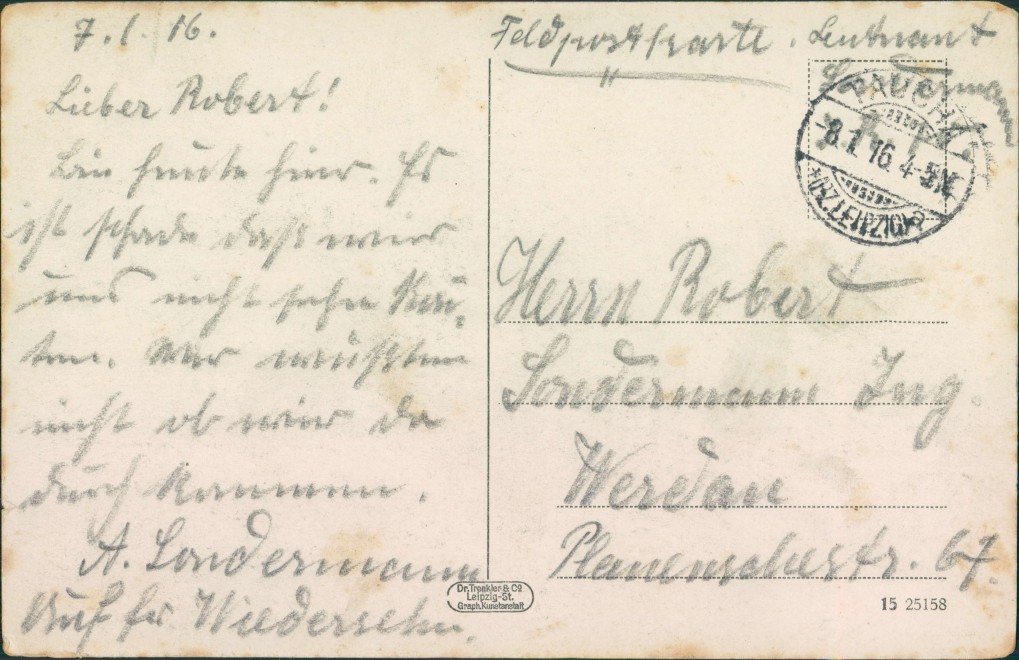 7.1.16.
Lieber Robert!
Bin heute hier. Es
ist schade daß wir
uns nicht sehen kön-
ten. Wir wußten
nicht ob wir da
durch kommen.
A. Sondermann
Auf Wiedersehn.
Feldpostkarte. Leutnant
Sondermann
TAUCHA
-8.1.16.4-5N.
*(BZ.LEIPZIG)
Herrn Robert
Sondermann Ing.
Werdau
Plauenschestr. 67.
Dr. Trenkler & Co
Leipzig-St.
Graph. Kunstanstalt
15 25158